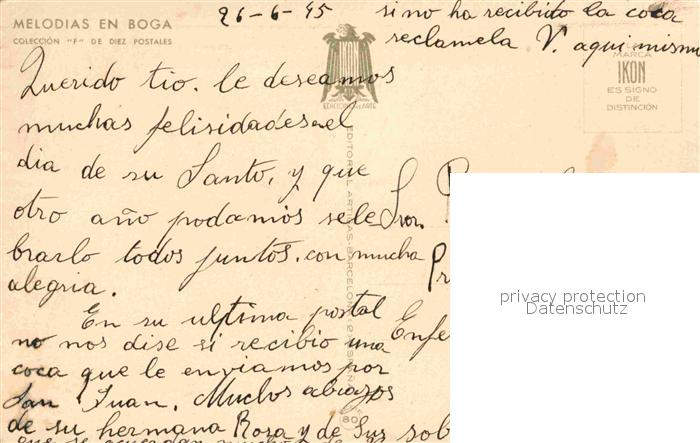 MELODIAS EN BOGA
COLECCIÓN "F" DE DIEZ POSTALES
26-6-45
si no ha recibido la coca
reclamela V. aqui mismo
MARCA
IKON
ES SIGNO
DE
DISTINCIÓN
Querido tio. le deseamos
muchas felisidades en el
dia de su Santo, y que
otro año podamos sele
brarlo todos juntos. con mucha
alegria.
En su ultima postal
no nos dise si recibio una
coca que le enviamos por
San Juan. Muchos abrazos
de su hermana Rosa y de sus sob
que se acuerdan mucho de
EDITORIAL ARTIGAS-BARCELONA
Sr.
Pr
Enfe
80
privacy protection
Datenschutz